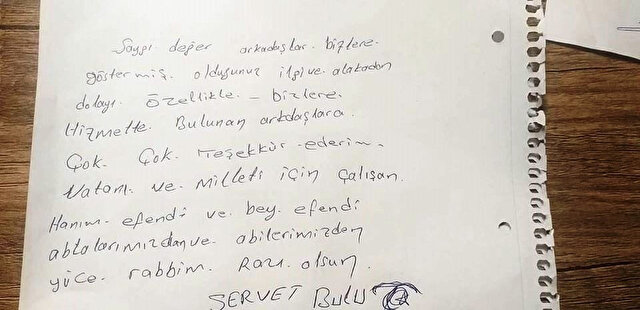 Saygı değer arkadaşlar. bizlere.
göstermiş. olduğunuz ilgi ve alakadan
dolayı. Özellikle - bizlere.
Hizmette. Bulunan arkdaşlara.
Çok. Çok. Teşekkür ederim.
Vatanı ve Milleti için çalışan.
Hanım efendi ve bey. efendi
ablalarımızdan ve abilerimizden
yüce. rabbim. Razı. olsun.
SERVET BULU